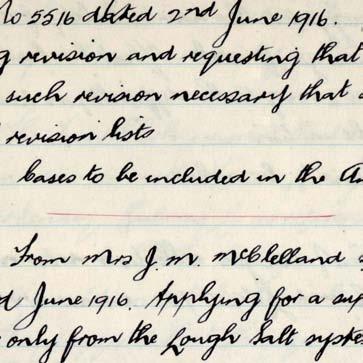 No 5516 dated 2nd June 1916.
g revision and requesting that
such revision necessary that a
revision lists
Cases to be included in the
From Mrs J. M. McClelland
June 1916. Applying for a
only from the Lough Salt syste